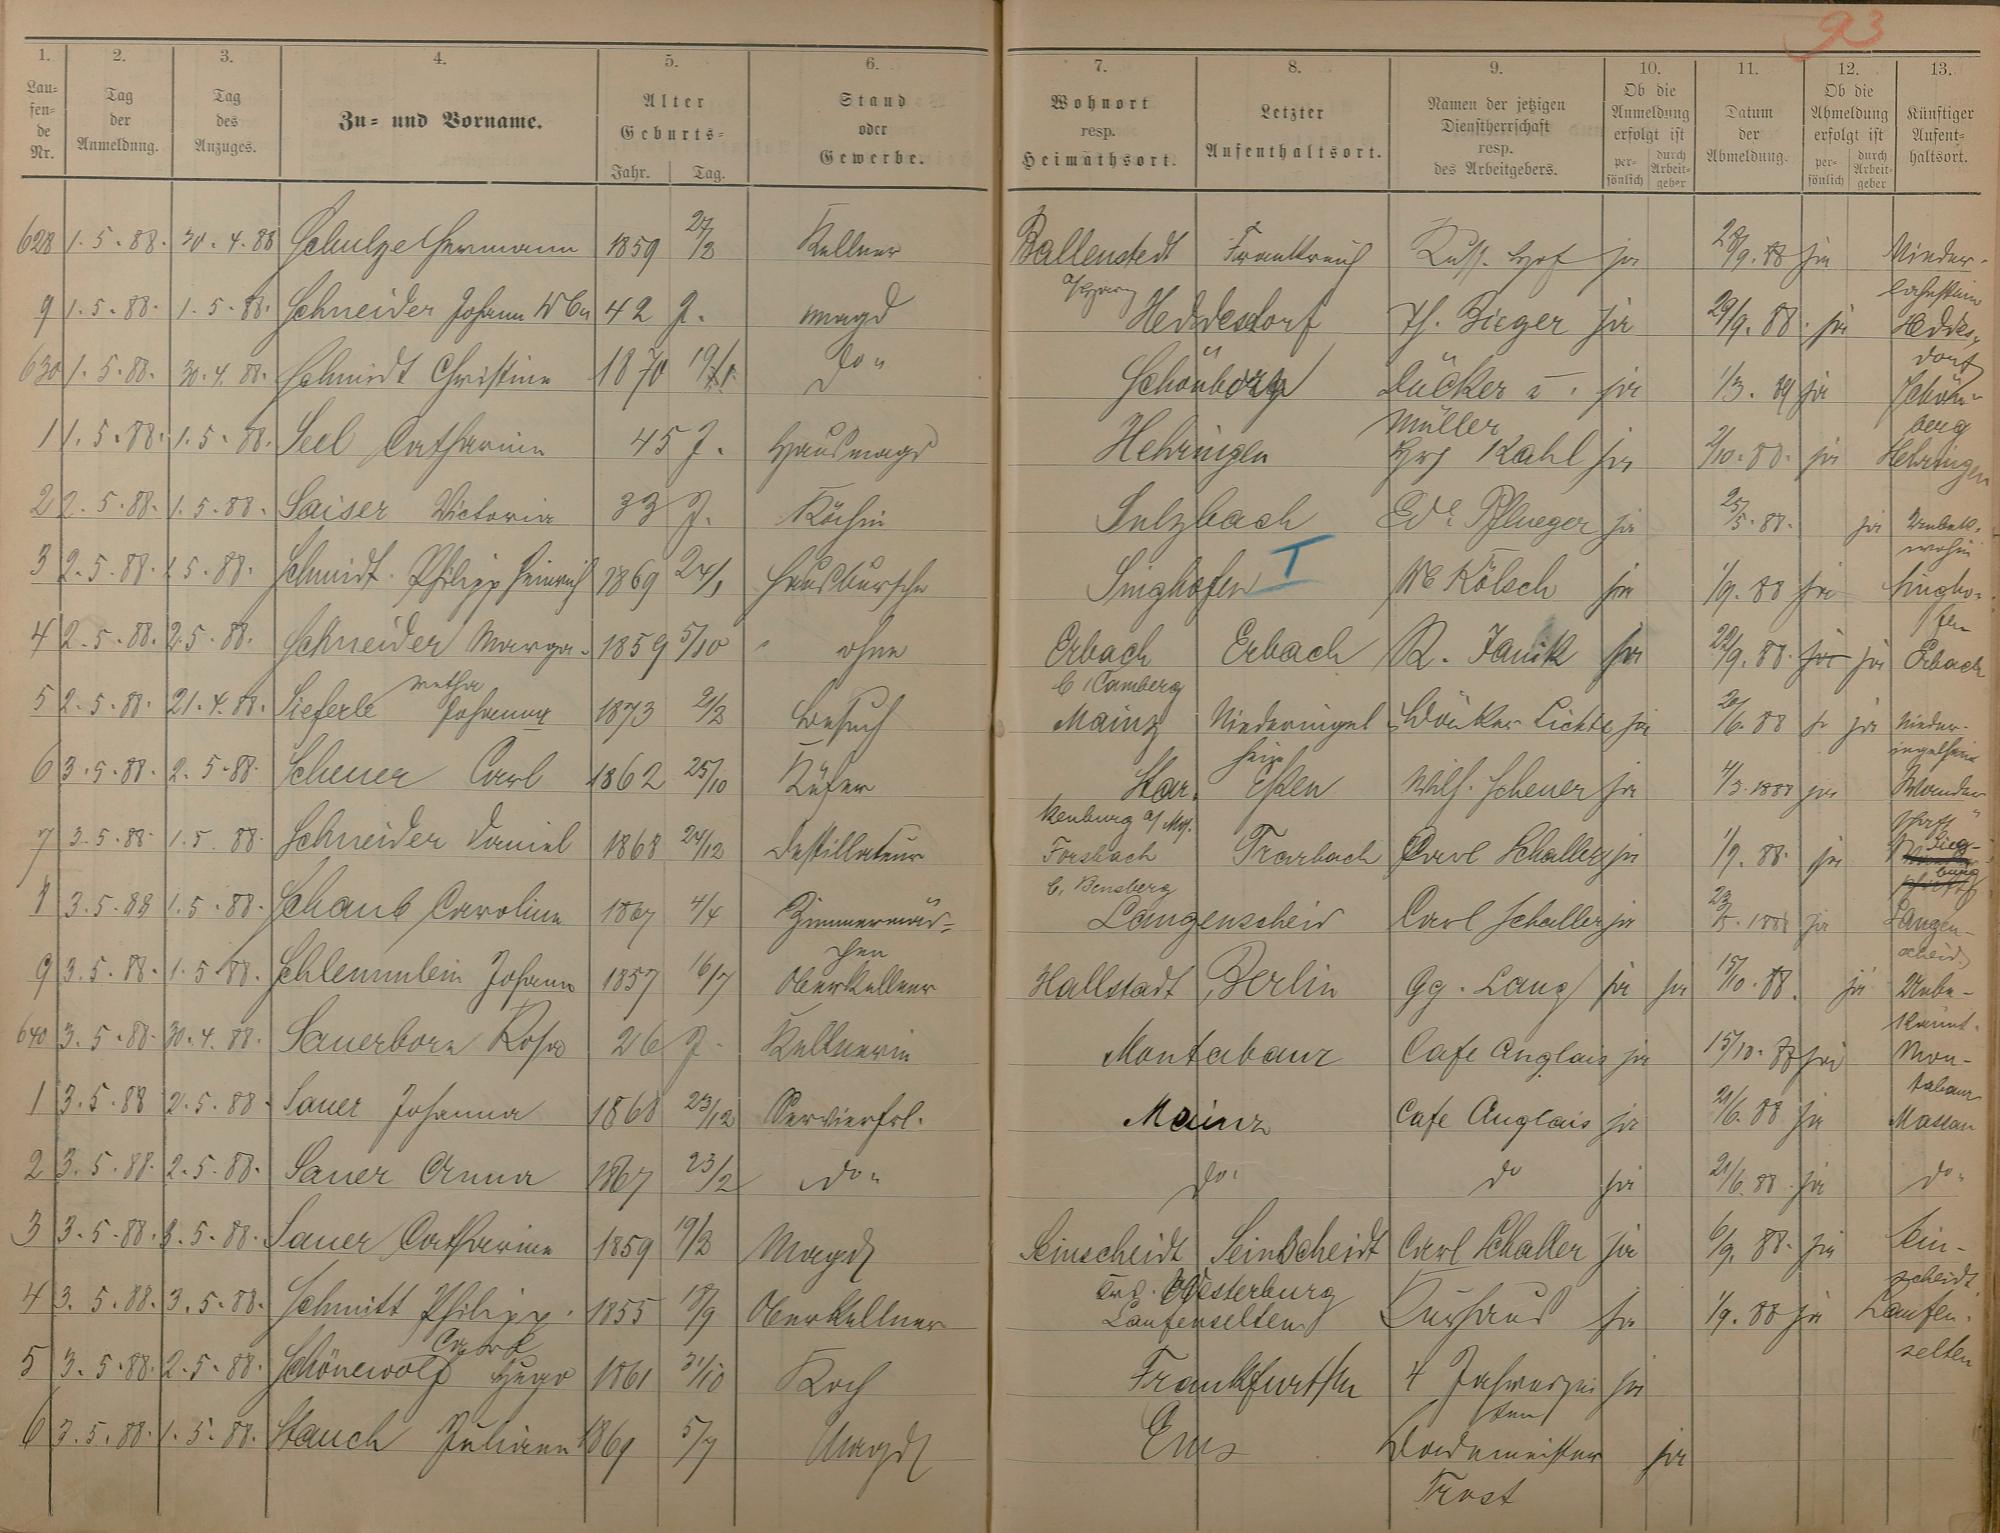 93
1. 2. 3. 4. 5. 6. 7. 8. 9. 10. 11. 12. 13.
Lau=fen=de Nr. Tag der Anmeldung. Tag des Anzuges. Zu= und Vorname. Alter Geburts= Jahr. Tag. Stand oder Gewerbe. Wohnort resp. Heimathsort. Letzter Aufenthaltsort. Namen der jetzigen Dienstherrschaft resp. des Arbeitgebers. Ob die Anmeldung erfolgt ist per=sönlich durch Arbeit=geber Datum der Abmeldung. Ob die Abmeldung erfolgt ist per=sönlich durch Arbeit=geber Künftiger Aufent=haltsort.
628 1.5.88. 30.4.88 Schulze Hermann 1859 27/2 Kellner Ballenstedt Frankreich Russ. Hof ja 28/9.88 ja Nieder-
a/Harz lahnstein
9 1.5.88. 1.5.88. Schneider Johann 42 J. Magd Heddesdorf Ph. Bieger ja 29/9.88. ja Heddes-
dorf
630 1.5.88. 30.4.88. Schmidt Christine 1870 do Schönborn Dücker u. ja 1/3.89 ja Schön-
Müller berg
1 1.5.88. 1.5.88. Seel Catharine 45 J. Hausmagd Hehringen Kahl ja 2/10.88. ja Hehringen
2 2.5.88. 1.5.88. Saiser Victoria 33 J. Köchin Sulzbach Ed. Pflueger ja 25/5.88. ja Unbek.
wohin
3 2.5.88. 5.88. Schmidt Philipp Heinrich 1869 24/1 Hausbursche Singhofen I We Kölsch ja 1/9.88 ja Singho-
fen
4 2.5.88. 2.5.88. Schneider Marga- 1859 5/10 ohne Erbach Erbach R. Janik ja 22/9.88. ja ja Erbach
retha b/Camberg
5 2.5.88. 21.4.88. Sieferle Johanna 1873 2/2 Besuch Mainz Niederingel Licht ja 20/6.88 ja Nieder-
heim ingelheim
6 3.5.88. 2.5.88. Scheuer Carl 1862 25/10 Küfer Star. Essen Wilh. Scheuer ja 4/3.1888 ja Wander
kenburg a/Mos. schaft
7 3.5.88. 1.5.88. Schneider Daniel 1868 24/12 Destillateur Forsbach Trarbach Carl Schaller ja 1/9.88. ja Sieg-
b. Bensberg burg
8 3.5.88 1.5.88. Schaub Caroline 1867 4/4 Zimmermäd= Langenscheid Carl Schaller ja 1888 ja Langen-
chen scheid
9 3.5.88. 1.5.88. Schlemmlein Johann 1857 16/7 Oberkellner Hallstadt Berlin Gg. Lang ja ja 15/10.88. ja Unbe-
kannt.
640 3.5.88. 30.4.88. Sauerborn Rosa 26 J. Kellnerin Montabaur Cafe Anglais ja 15/10.88 ja Mon-
tabaur
1 3.5.88 2.5.88. Sauer Johanna 1868 23/12 Servierfrl. Mainz Cafe Anglais ja 21/6.88 ja Massau
2 3.5.88. 2.5.88. Sauer Anna 1867 23/2 do do do ja 21/6.88. ja do
3 3.5.88. 3.5.88. Sauer Catharine 1859 19/2 Magd Seinscheidt Seinscheidt Carl Schaller ja 6/9.88. ja Sein-
Westerburg scheidt
4 3.5.88. 3.5.88. Schmitt Philipp. 1855 18/9 Oberkellner Laufenselten Kurhaus ja 1/9.88 ja Laufen-
selten
5 3.5.88. 2.5.88. Schönewolf Hugo 1861 31/10 Koch Frankfurt/M 4 Jahreszei ja
ten
6 3.5.88. 1.5.88. Stauch Juliane 1869 5/7 Magd Ems Bademeister ja
Trost